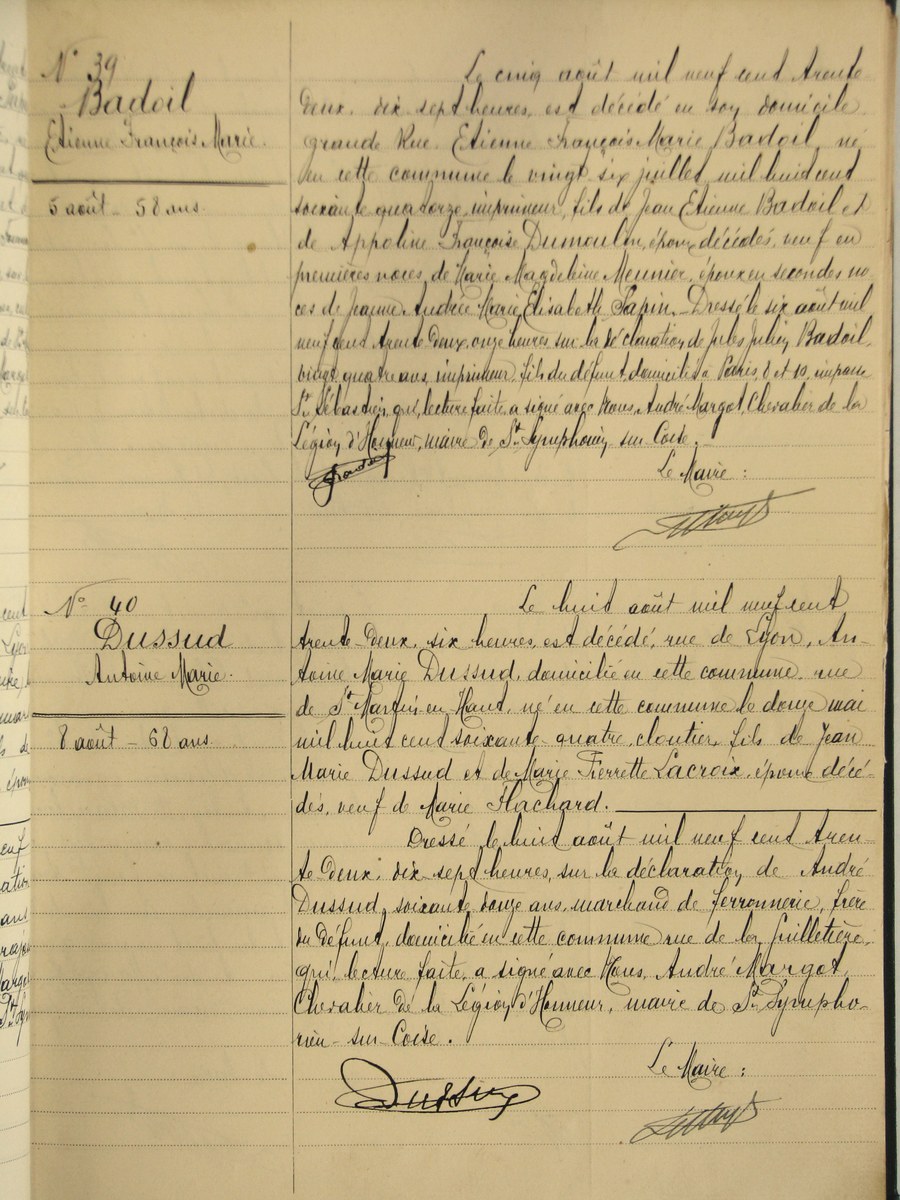 N° 39
Badoil
Etienne François Marie.
5 août - 58 ans.
Le cinq août mil neuf cent trente
deux, dix sept heures, est décédé en son domicile
grande Rue, Etienne François Marie Badoil, né
en cette commune le vingt six juillet mil huit cent
soixante quatorze, imprimeur, fils de Jean Etienne Badoil et
de Appoline Françoise Dumoulin, époux décédés, veuf en
premières noces de Marie Magdeleine Meunier, époux en secondes no
ces de Jeanne Andrée Marie Elisabeth Papin. Dressé le six août mil
neuf cent trente deux, onze heures, sur la déclaration de Jules Julien Badoil,
vingt quatre ans, imprimeur, fils du défunt, domicilié à Paris, 8 et 10, impasse
St Sébastien, qui, lecture faite, a signé avec Nous, André Margot, Chevalier de la
Légion d'Honneur, maire de St Symphorien sur Coise.
Le Maire :
N° 40
Dussud
Antoine Marie.
8 août - 68 ans.
Le huit août mil neuf cent
trente-deux, six heures, est décédé, rue de Lyon, An-
toine Marie Dussud, domicilié en cette commune, rue
de St Martin en Haut, né en cette commune le douze mai
mil huit cent soixante-quatre, cloutier, fils de Jean
Marie Dussud et de Marie Pierrette Lacroix, époux décé-
dés, veuf de Marie Flachard.
Dressé le huit août mil neuf cent tren-
te deux, dix sept heures, sur la déclaration de André
Dussud, soixante douze ans, marchand de ferronnerie, frère
du défunt, domicilié en cette commune rue de la Guilletière,
qui, lecture faite, a signé avec Nous, André Margot,
Chevalier de la Légion d'Honneur, maire de St Sympho-
rien-sur-Coise.
Le Maire :
Dussud